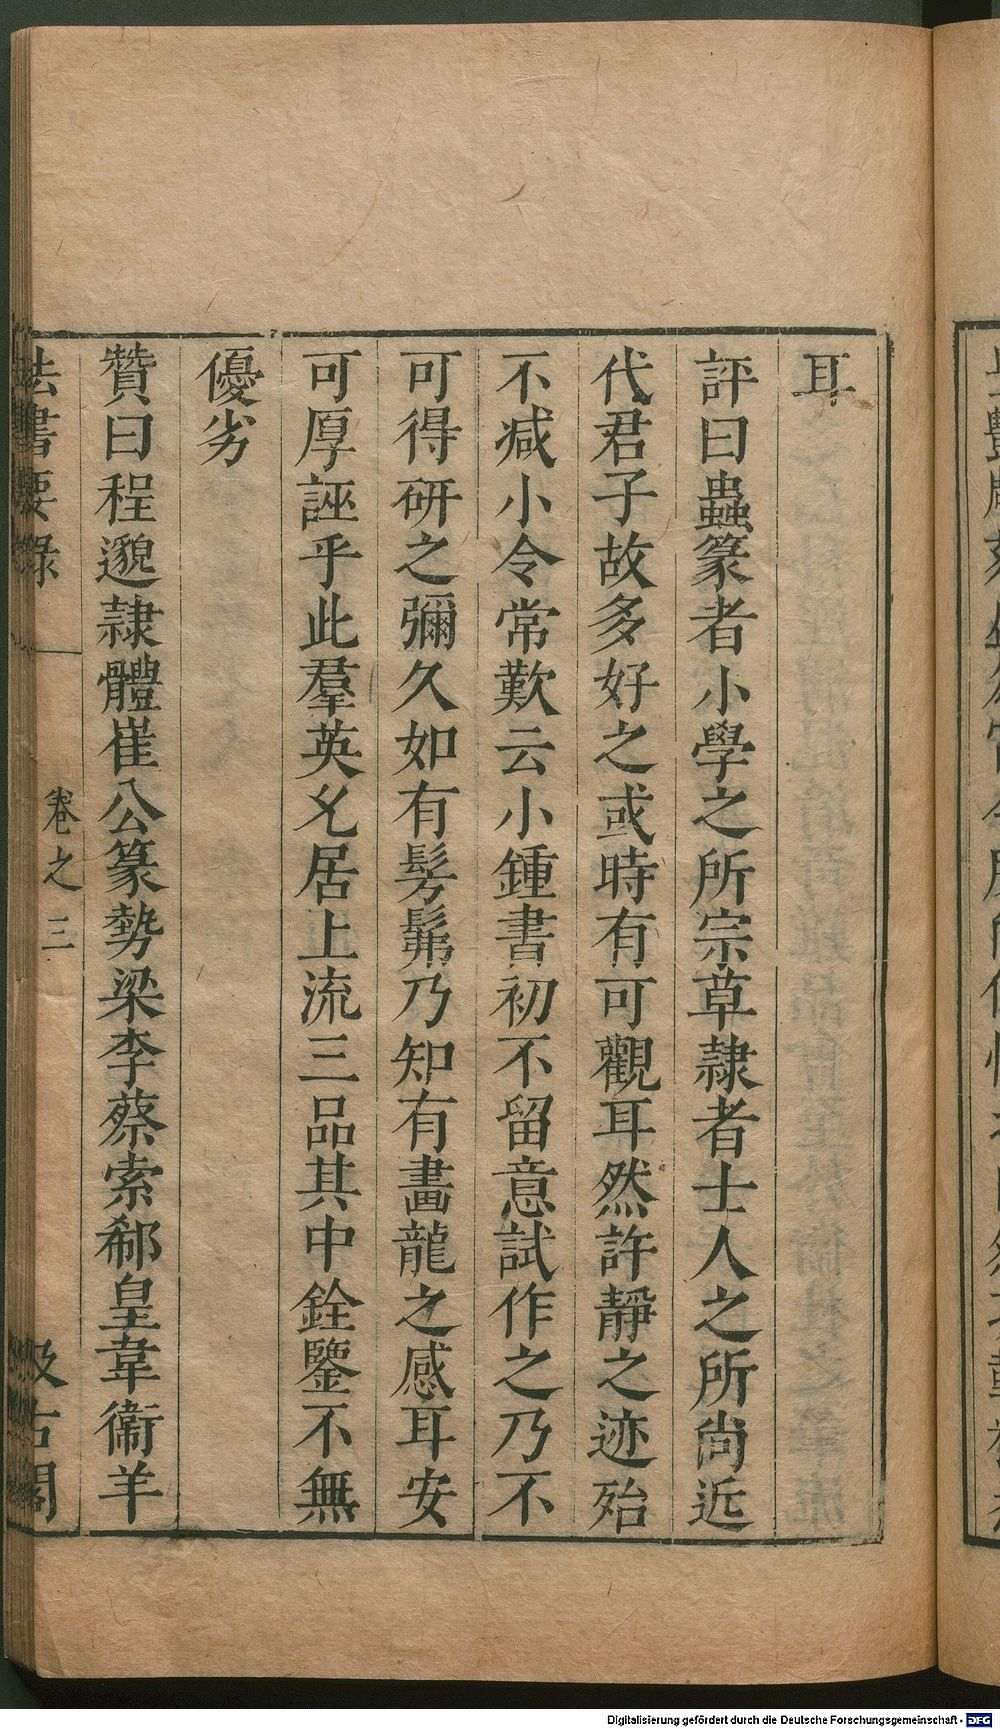 耳
評曰蟲篆者小學之所宗草隷者士人之所尚近
代君子故多好之或時有可觀耳然許靜之迹殆
不减小令常歎云小鍾書初不留意試作之乃不
可得研之彌久如有髣髴乃知有畵龍之感耳安
可厚誣乎此羣英允居上流三品其中銓鑒不無
優劣
贊曰程邈隷體崔公篆勢梁李蔡索郗皇韋衞羊
法書要錄
卷之三
汲古閣
Digitalisierung gefördert durch die Deutsche Forschungsgemeinschaft - DFG